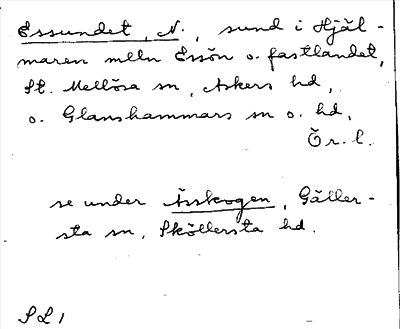 Essundet, N., sund i Hjäl-
maren melln Essön o. fastlandet,
St. Mellösa sn, Askers hd,
o. Glanshammars sn o. hd,
Ör. l.
se under Ässkogen, Gäller-
sta sn, Sköllersta hd.
SL 1